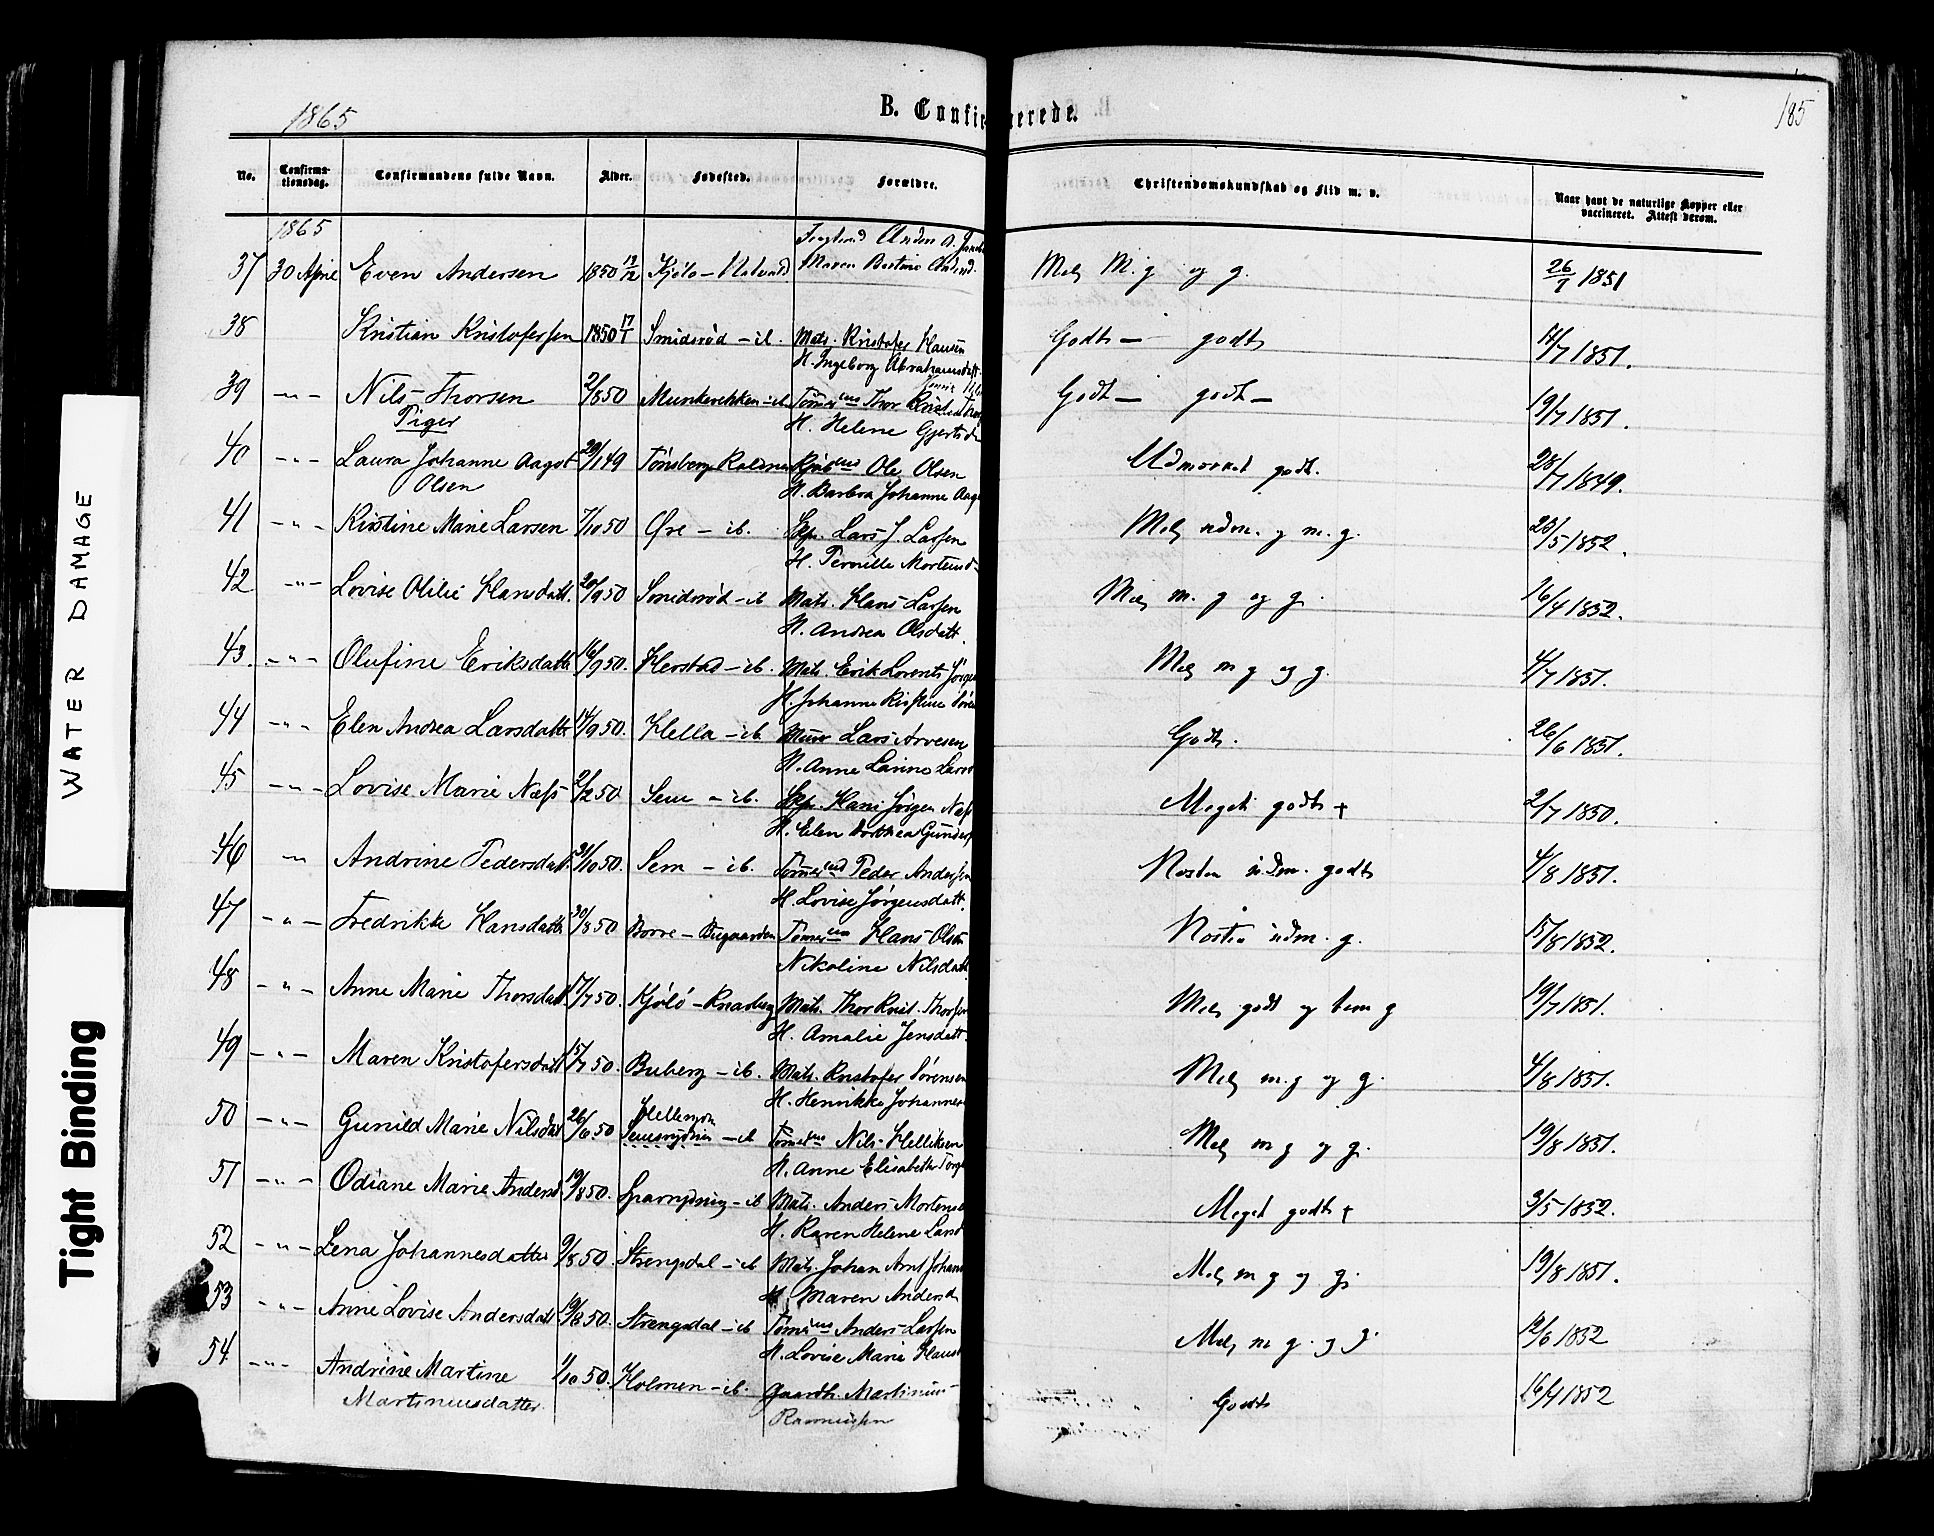 1865
B. Confir
erede.
185
No.
Confirma-
tionsdag.
Confirmandens fulde Navn.
Alder.
Fødested.
Forældre.
Christendomskundskab og Flid m. v.
Naar havt de naturlige Kopper eller
vaccineret. Attest derom.
1865
37 30 April Even Andersen 1850 Kjölö
Maren
Mel M. g og g. 26/7 1851
38 Kristian Kristofersen 1850 Smidsrød - ib. Mats. Kristofer Hansen
H. Ingeborg Abrahamsdatt.
Godt - godt 1851.
39 -"- Nils Thorsen 2/8 50 Munkerekken - ib Tømmermd Thor
Tiger H. Helene Gjertsd
Godt - godt - 19/7 1851.
40 -"- Laura Johanne Aagot 49 Tönsberg Ole Olsen
Olsen H. Barbra Johanne Aag
Udmærket godt. 28/7 1849.
41 -"- Kirstine Marie Larsen 7/10 50 Øre - ib. Skp. Lars J. Larsen
H. Pernille Mortensd
Mel udm. g m. g. 23/5 1852.
42 -"- Lovise Olilie Hansdatt. 20/9 50 Smidsrød - ib Mats. Hans Larsen
H. Andrea Olsdatt.
Mel m. g og g. 16/4 1852.
43. -"- Olufine Eriksdatt 16/9 50. Herstad - ib. Mats. Erik Lorents Jörgen
H. Johanne Kirstine Sören
Mel m g og g. 4/7 1851.
44 -"- Elen Andrea Larsdatt 14/9 50. Hella - ib Lars Arvesen
H. Anne Larine Larsd
Godt. 26/6 1851.
45 -"- Lovise Marie Næss 2/2 50 Sem - ib. Skp. Hans Jörgen Næss
H. Elen Dorthea Gunders
Meget godt + 2/7 1850.
46 -"- Andrine Pedersdatt. 31/10 50. Sem - ib. Tømmermd Peder Andersen
H. Lovise Jørgensdatt.
Næsten udm. godt 4/8 1851.
47 -"- Fredrikke Hansdatt 30/8 50 Borre - Bugaarden Tømmerm Hans Olsen
Nikoline Nilsdatt
Næsten udm. g. 17/8 1852.
48 -"- Anne Marie Thorsdatt. 17/7 50. Kjölö - Knarberg Mats. Thor Krist. Thorsen
H. Amalie Jensdatt.
Mel godt og tem g 19/7 1851.
49 -"- Maren Kristofersdatt 15/7 50. Buberg - ib. Mats. Kristofer Sörensen
H. Henrikke Johannes
Mel m. g og g. 4/8 1851.
50 -"- Gunild Marie Nilsdat 26/6 50 - ib Tømmerm Nils Helliksen
H. Anne Elisabeth
Mel m g og g. 19/8 1851.
51 -"- Odiane Marie Andersd 19/8 50. - ib Mats. Anders Mortensen
H. Karen Helene Larsd
Meget godt + 3/5 1852.
52 -"- Lena Johannesdatter 9/8 50. Strengsdal - ib Mats. Johan Arnt Johans
H. Maren Andersd
Mel m g og g. 19/8 1851.
53 -"- Anne Lovise Andersdatt 19/8 50. Strengsdal - ib Tømmerm Anders Larsen
H. Lovise Marie Hansd
Mel m g. og g. 12/6 1852
54 -"- Andrine Martine 1/10 50. Holmen - ib. Gaardb. Martinius
Martiniusdatter Rasmussen
Godt 16/4 1852
WATER DAMAGE
Tight Binding